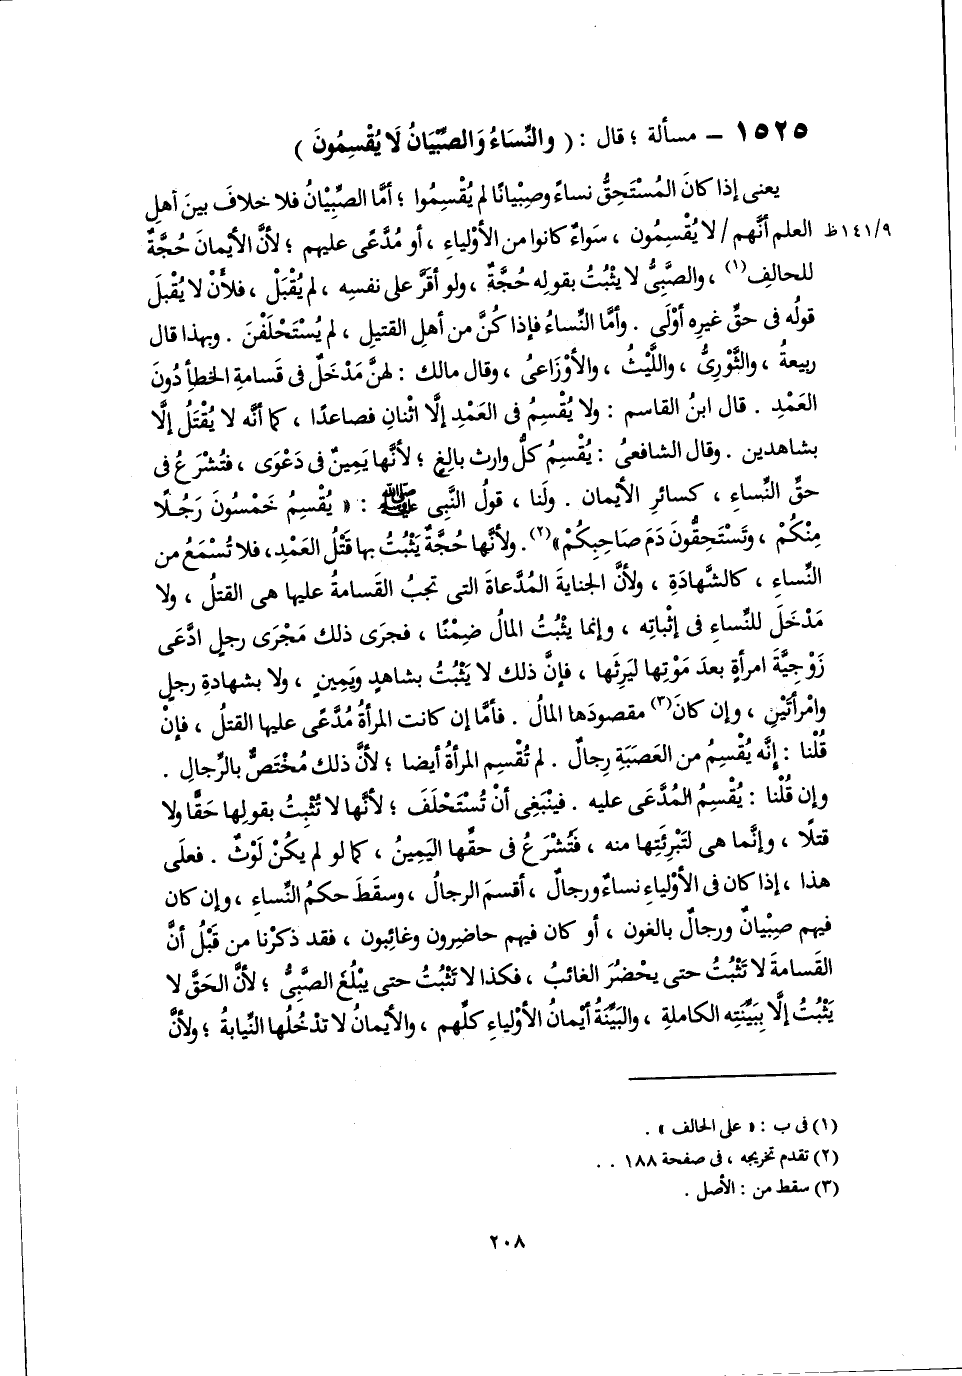 ١٥٢٥ – مسألة ؛ قال : ( والنِّسَاءُ وَالصِّبْيَانُ لَا يُقْسِمُونَ )
يعنى إذا كانَ المُسْتَحِقُّ نساءً وصِبْيانًا لم يُقْسِمُوا ؛ أمَّا الصِّبْيانُ فلا خلافَ بينَ أهلِ
١٤١/٩ظ العلم أنَّهم / لا يُقْسِمُون ، سَواءٌ كانوا من الأوْلياءِ ، أو مُدَّعًى عليهم ؛ لأنَّ الأيْمانَ حُجَّةٌ
للحالِفِ(١) ، والصَّبِىُّ لا يَثْبُتُ بقولِه حُجَّةٌ ، ولو أقَرَّ على نفسِه ، لم يُقْبَلْ ، فلأَنْ لا يُقْبلَ
قولُه فى حقِّ غيرِه أوْلَى . وأمَّا النِّساءُ فإذا كُنَّ من أهلِ القتيلِ ، لم يُسْتَحْلَفْنَ . وبهذا قال
ربيعةُ ، والثَّوْرِىُّ ، واللَّيْثُ ، والأوْزَاعىُّ ، وقال مالك : لهنَّ مَدْخَلٌ فى قَسامةِ الخطأِ دُونَ
العَمْدِ . قال ابنُ القاسم : ولا يُقْسِمُ فى العَمْدِ إلَّا اثْنانِ فصاعدًا ، كما أنَّه لا يُقْتَلُ إلَّا
بشاهدين . وقال الشافعىُّ : يُقْسِمُ كلُّ وارثٍ بالِغٍ ؛ لأنَّها يَمِينٌ فى دَعْوَى ، فتُشْرَعُ فى
حقِّ النِّساءِ ، كسائرِ الأيْمان . ولَنا ، قولُ النَّبِى ﷺ : « يُقْسِمُ خَمْسُونَ رَجُلًا
مِنْكُمْ ، وَتَسْتَحِقُّونَ دَمَ صَاحِبِكُمْ »(٢) . ولأنَّها حُجَّةٌ يَثْبُتُ بها قَتْلُ العَمْدِ ، فلا تُسْمَعُ من
النِّساءِ ، كالشَّهادَةِ ، ولأنَّ الجنايةَ المُدَّعاةَ التى تجبُ القَسامةُ عليها هى القتلُ ، ولا
مَدْخَلَ للنِّساءِ فى إثْباتِه ، وإنما يثْبُتُ المالُ ضِمْنًا ، فجرَى ذلك مَجْرَى رجلٍ ادَّعَى
زَوْجِيَّةَ امرأةٍ بعدَ مَوْتِها لِيَرِثَها ، فإنَّ ذلك لا يَثْبُتُ بشاهدٍ ويَمِينٍ ، ولا بشهادةِ رجلٍ
وامْرأتَيْنِ ، وإن كانَ(٣) مقصودَها المالُ . فأمَّا إن كانت المرأةُ مُدَّعًى عليها القتلُ ، فإنْ
قُلْنا : إنَّه يُقْسِمُ من العَصَبَةِ رِجالٌ . لم تُقْسِمِ المرأةُ أيضا ؛ لأنَّ ذلك مُخْتَصٌّ بالرِّجالِ .
وإن قُلْنا : يُقْسِمُ المُدَّعَى عليه . فينبَغِى أنْ تُسْتَحْلَفَ ؛ لأنَّها لا تُثْبِتُ بقولِها حَقًّا ولا
قتلًا ، وإنَّما هى لتَبْرِئَتِها منه ، فتُشْرَعُ فى حقِّها اليَمِينُ ، كما لو لم يكُنْ لَوْثٌ . فعلَى
هذا ، إذا كان فى الأوْلياءِ نساءٌ ورجالٌ ، أقسمَ الرجالُ ، وسقَطَ حكمُ النِّساءِ ، وإن كان
فيهم صِبْيانٌ ورجالٌ بالغون ، أو كان فيهم حاضِرون وغائِبون ، فقد ذكَرْنا من قَبْلُ أنَّ
القَسامةَ لا تَثْبُتُ حتى يحْضُرَ الغائبُ ، فكذا لا تَثْبُتُ حتى يبْلُغَ الصَّبِىُّ ؛ لأنَّ الحَقَّ لا
يَثْبُتُ إلَّا بِبَيِّنَتِه الكاملةِ ، والبَيِّنَةُ أيْمانُ الأوْلياءِ كلِّهم ، والأيْمانُ لا تدْخُلُها النِّيابةُ ؛ ولأنَّ
(١) فى ب : « على الحالف » .
(٢) تقدم تخريجه ، فى صفحة ١٨٨ . .
(٣) سقط من : الأصل .
٢٠٨